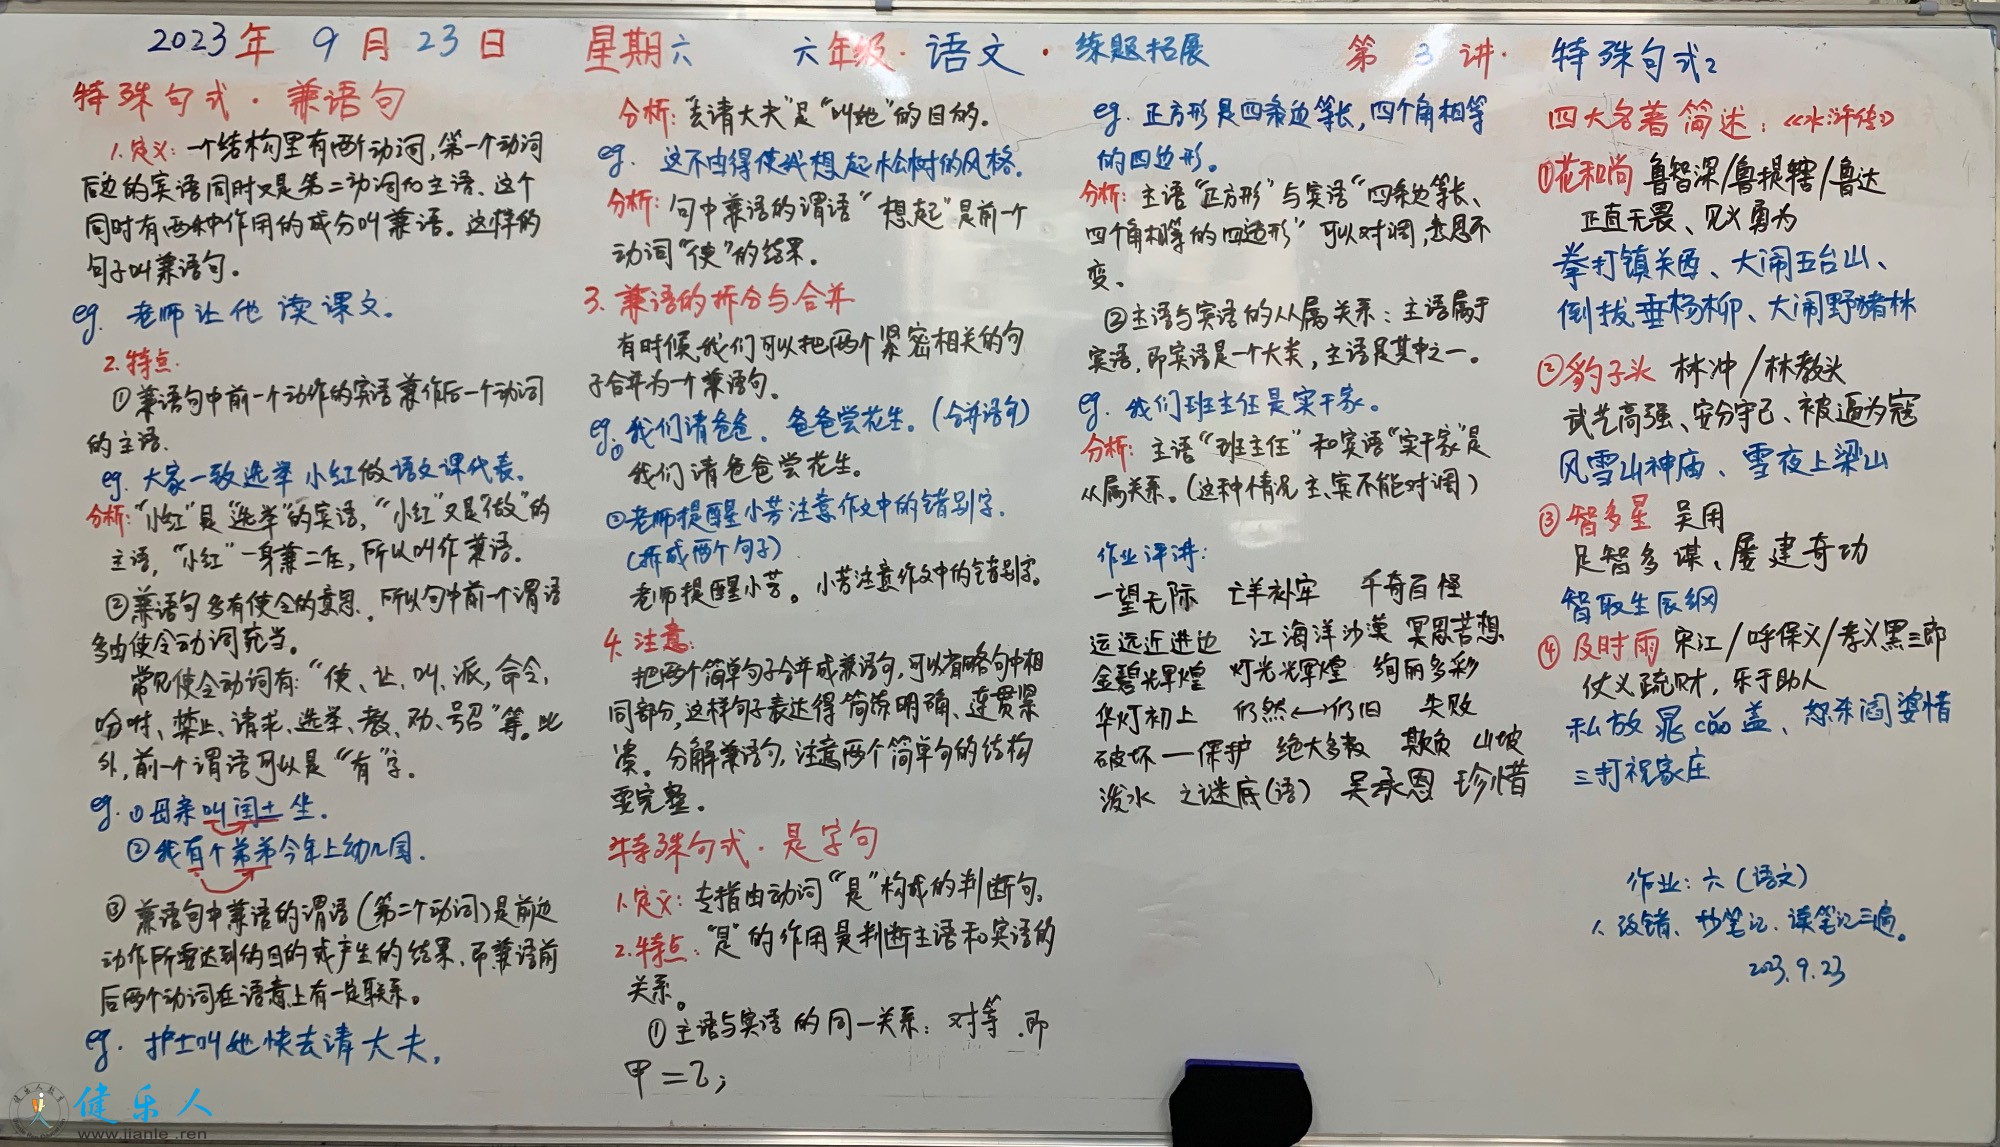 2023年 9月23日 星期六 六年级·语文·练题拓展 第3讲·特殊句式2
特殊句式·兼语句
1.定义:一个结构里有两个动词,第一个动词
后边的宾语同时又是第二动词的主语、这个
同时有两种作用的成分叫兼语。这样的
句子叫兼语句。
eg. 老师让他读课文.
2.特点.
①兼语句中前一个动作的宾语兼作后一个动词
的主语.
eg.大家一致选举小红做语文课代表。
分析:“小红”是“选举”的宾语,“小红”又是“做”的
主语,“小红”一身兼二任,所以叫作兼语.
②兼语句多有使令的意思.所以句中前一个谓语
多由使令动词充当。
常见使令动词有:“使、让、叫、派,命令,
吩咐、禁止、请求、选举、教、劝、号召”等。此
外,前一个谓语可以是“有”字。
eg.①母亲叫闰土坐.
②我有个弟弟今年上幼儿园.
③兼语句中兼语的谓语(第二个动词)是前边
动作所要达到的目的或产生的结果.即兼语前
后两个动词在语意上有一定联系。
eg. 护士叫她快去请大夫.
分析:“去请大夫”是“叫她”的目的。
eg. 这不由得使我想起松树的风格.
分析:句中兼语的谓语“想起”是前一个
动词“使”的结果。
3.兼语的拆分与合并
有时候,我们可以把两个紧密相关的句
子合并为一个兼语句。
eg.①我们请爸爸. 爸爸尝花生。(合并语句)
我们请爸爸尝花生。
②老师提醒小芳注意作文中的错别字.
(拆成两个句子)
老师提醒小芳。小芳注意作文中的错别字。
4.注意:
把两个简单句子合并成兼语句,可以省略句中相
同部分,这样句子表达得简练明确、连贯紧
凑。分解兼语句,注意两个简单句的结构
要完整。
特殊句式·是字句
1.定义:专指由动词“是”构成的判断句.
2.特点:“是”的作用是判断主语和宾语的
关系。
①主语与宾语的同一关系:对等.即
甲=乙;
eg. 正方形是四条边等长,四个角相等
的四边形。
分析:主语“正方形”与宾语“四条边等长、
四个角相等的四边形”可以对调,意思不
变。
②主语与宾语的从属关系:主语属于
宾语,即宾语是一个大类,主语是其中之一。
eg. 我们班主任是实干家。
分析:主语“班主任”和宾语“实干家”是
从属关系。(这种情况主、宾不能对调)
作业评讲:
一望无际 亡羊补牢 千奇百怪
运远近进边 江海洋沙漠 冥思苦想
金碧辉煌 灯光辉煌 绚丽多彩
华灯初上 仍然⟷仍旧 失败
破坏—保护 绝大多数 欺负 山坡
泼水 之谜底(语) 吴承恩 珍惜
四大名著简述:《水浒传》
①花和尚 鲁智深/鲁提辖/鲁达
正直无畏、见义勇为
拳打镇关西、大闹五台山、
倒拔垂杨柳、大闹野猪林
②豹子头 林冲/林教头
武艺高强、安分守己、被逼为寇
风雪山神庙、雪夜上梁山
③智多星 吴用
足智多谋、屡建奇功
智取生辰纲
④及时雨 宋江/呼保义/孝义黑三郎
仗义疏财,乐于助人
私放晁cáo盖、怒杀阎婆惜
三打祝家庄
作业:六(语文)
1.改错、抄笔记.读笔记三遍。
2023.9.23
健乐人
www.jianle.ren